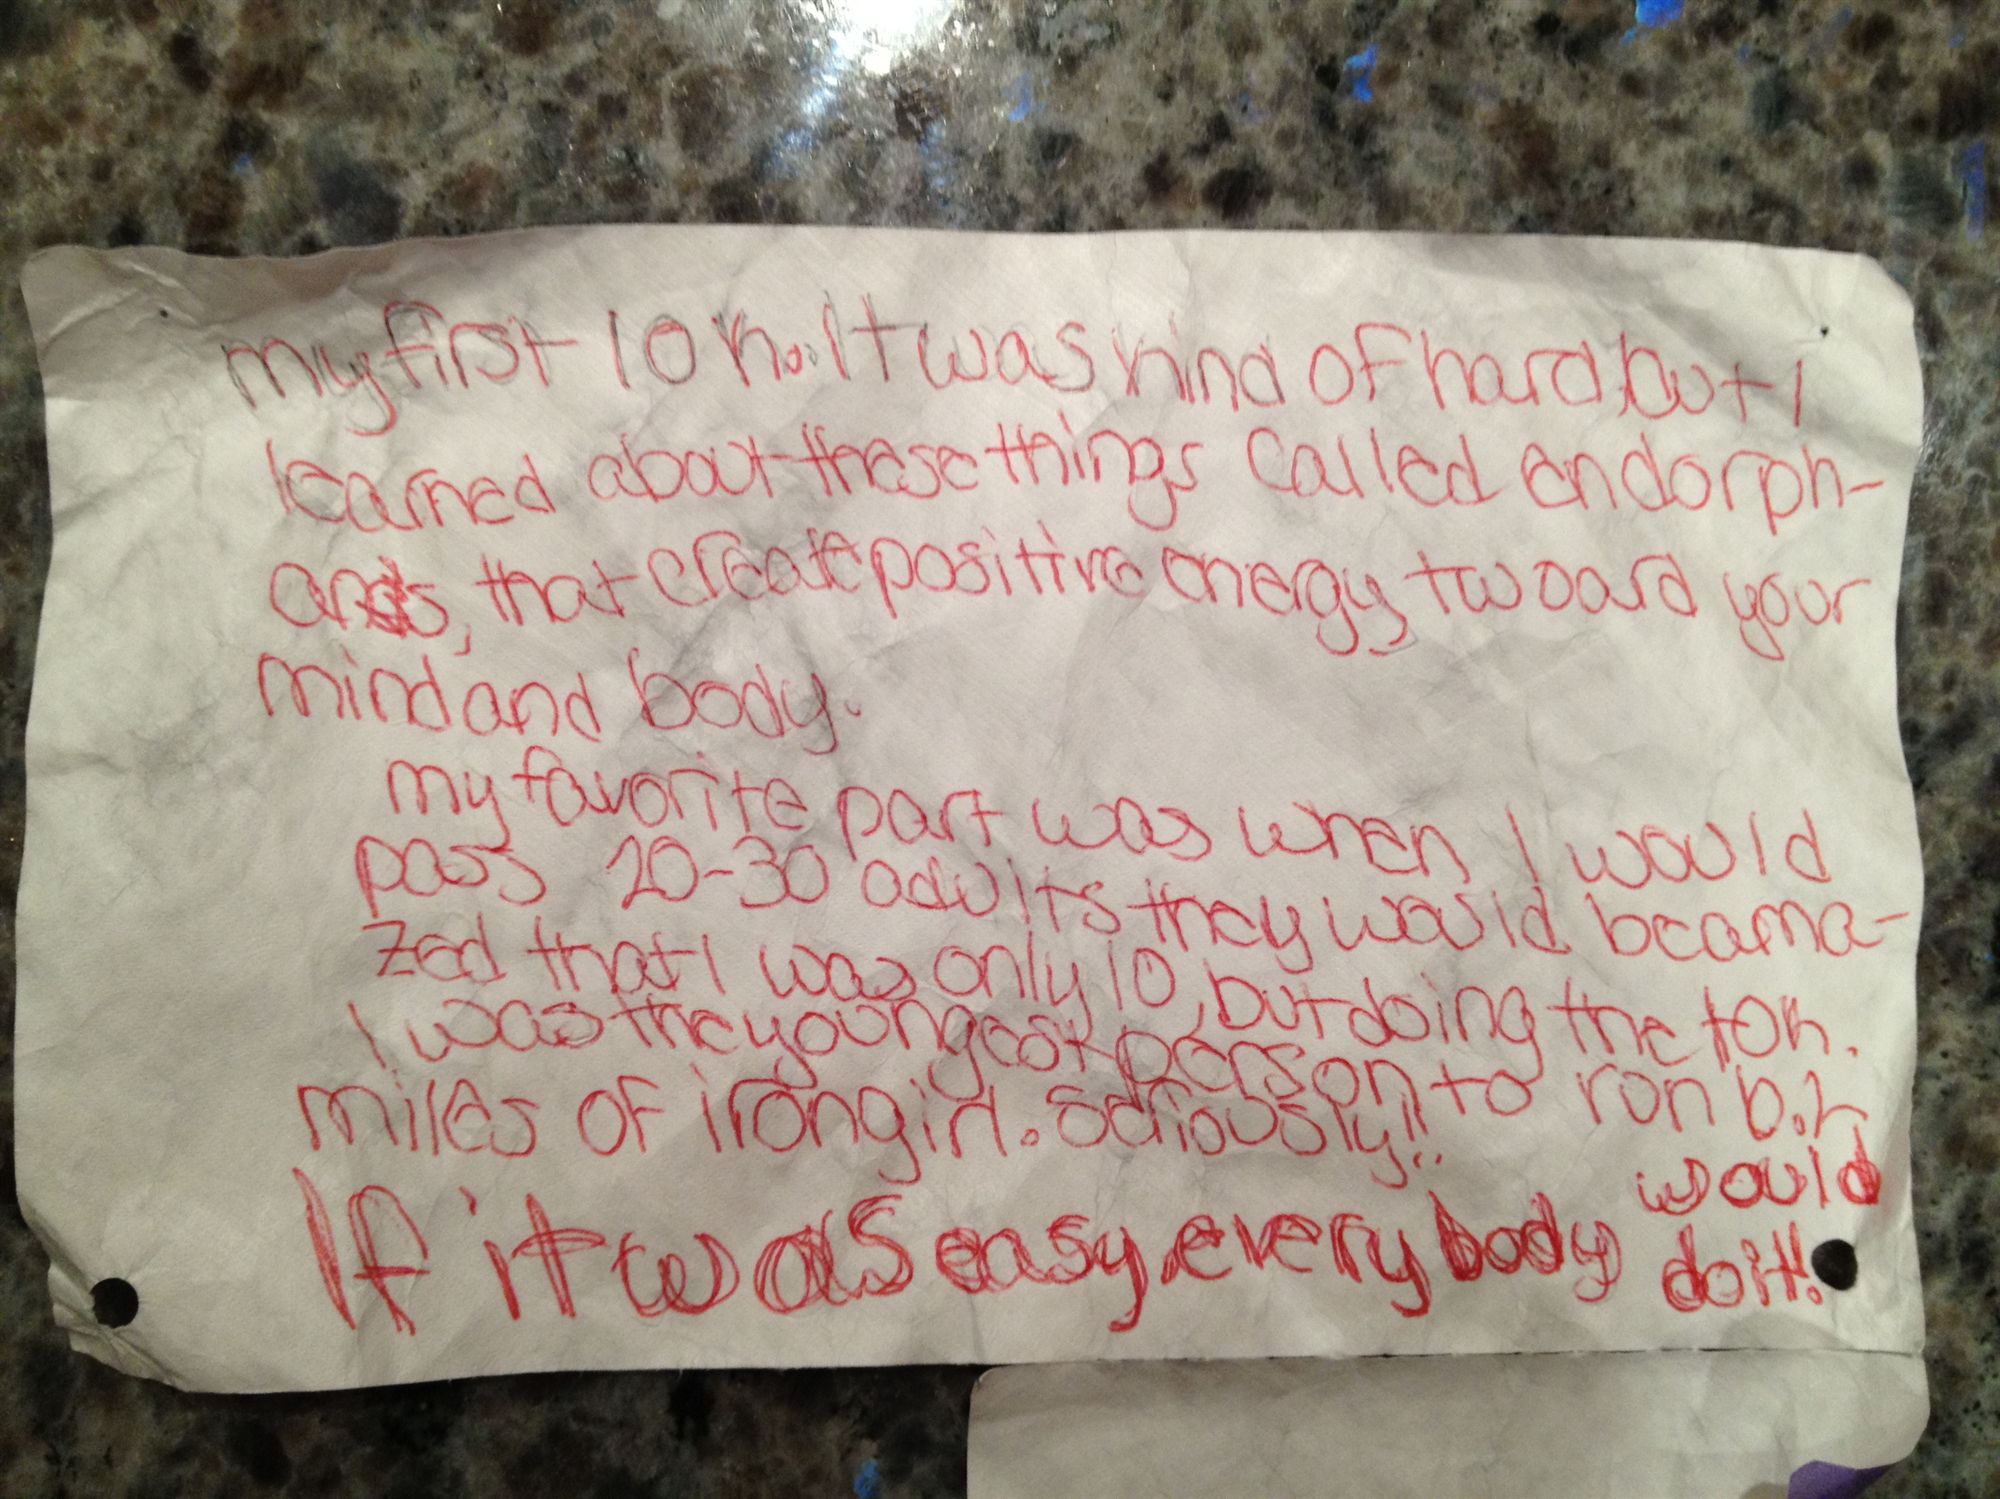 my first 10 k. It was kind of hard, but I
learned about these things called endorph-
ands, that create positive energy twoard your
mind and body.
my favorite part was when I would
pass 20-30 adults they would be ama-
zed that I was only 10, but doing the 10k.
I was the youngest person to ron 6.2
miles of irongirl. Seriously!!
If it was easy, every body would
do it!